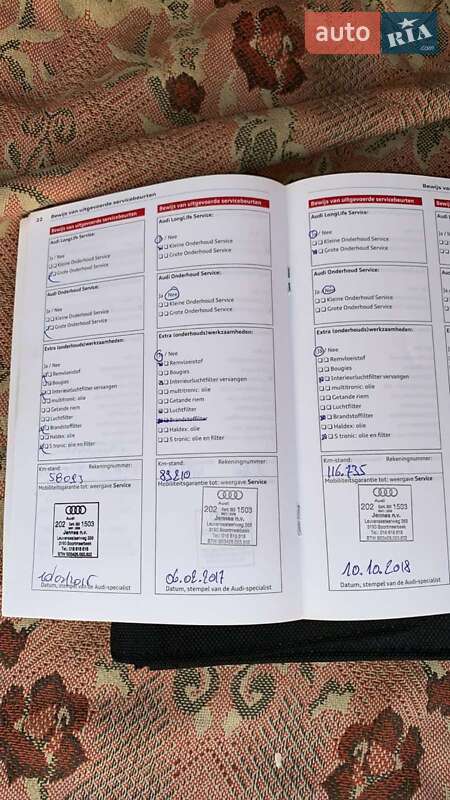 auto RIA.com
22 Bewijs van uitgevoerde servicebeurten
Bewijs van uitgevoerde servicebeurten
Audi LongLife Service:
Ja / Nee
Kleine Onderhoud Service
Grote Onderhoud Service
Audi Onderhoud Service:
Ja / Nee
Kleine Onderhoud Service
Grote Onderhoud Service
Extra (onderhouds)werkzaamheden:
Ja / Nee
Remvloeistof
Bougies
Interieurluchtfilter vervangen
multitronic: olie
Getande riem
Luchtfilter
Brandstoffilter
Haldex: olie
S tronic: olie en filter
Km-stand: Rekeningnummer:
58093
Mobiliteitsgarantie tot: weergave Service
Audi
202 1503
Jennes n.v.
Datum, stempel van de Audi-specialist
Bewijs van uitgevoerde servicebeurten
Audi LongLife Service:
Ja / Nee
Kleine Onderhoud Service
Grote Onderhoud Service
Audi Onderhoud Service:
Ja / Nee
Kleine Onderhoud Service
Grote Onderhoud Service
Extra (onderhouds)werkzaamheden:
Ja / Nee
Remvloeistof
Bougies
Interieurluchtfilter vervangen
multitronic: olie
Getande riem
Luchtfilter
Brandstoffilter
Haldex: olie
S tronic: olie en filter
Km-stand: Rekeningnummer:
83210
Mobiliteitsgarantie tot: weergave Service
Audi
202 1503
Jennes n.v.
06.02.2017
Datum, stempel van de Audi-specialist
Bewijs van
Bewijs van uitgevoerde servicebeurten
Audi LongLife Service:
Ja / Nee
Kleine Onderhoud Service
Grote Onderhoud Service
Audi Onderhoud Service:
Ja / Nee
Kleine Onderhoud Service
Grote Onderhoud Service
Extra (onderhouds)werkzaamheden:
Ja / Nee
Remvloeistof
Bougies
Interieurluchtfilter vervangen
multitronic: olie
Getande riem
Luchtfilter
Brandstoffilter
Haldex: olie
S tronic: olie en filter
Km-stand: Rekeningnummer:
116.735
Mobiliteitsgarantie tot: weergave Service
Audi
202 1503
Jennes n.v.
10.10.2018
Datum, stempel van de Audi-specialist